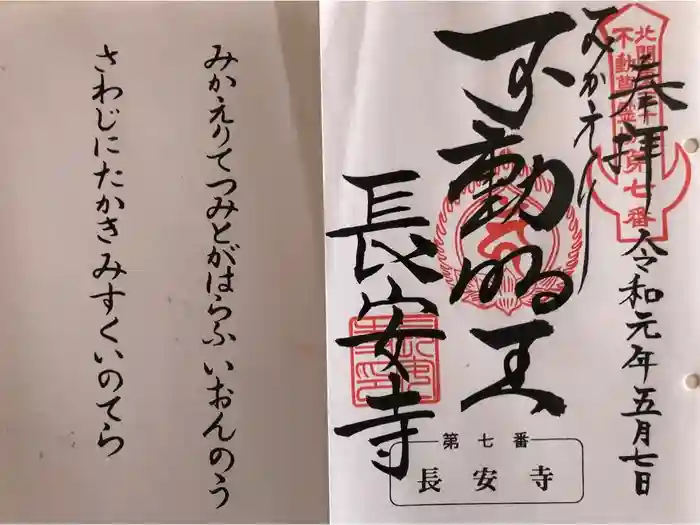 奉拝
令和元年五月七日
みかえり
不動明王
長安寺
第七番
第七番
長安寺
みかえりてつみとがはらふいおんのう
さわじにたかきみすくいのてら